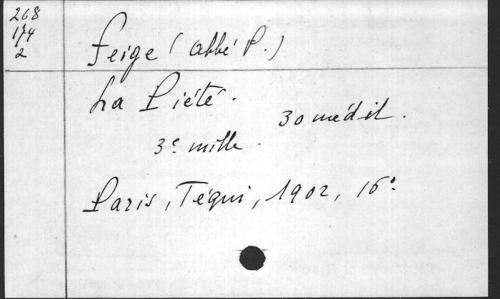 268
174
2
Feige (abbé P.)
La Piété.
30 médit.
3e mille.
Paris, Téqui, 1902, 16°